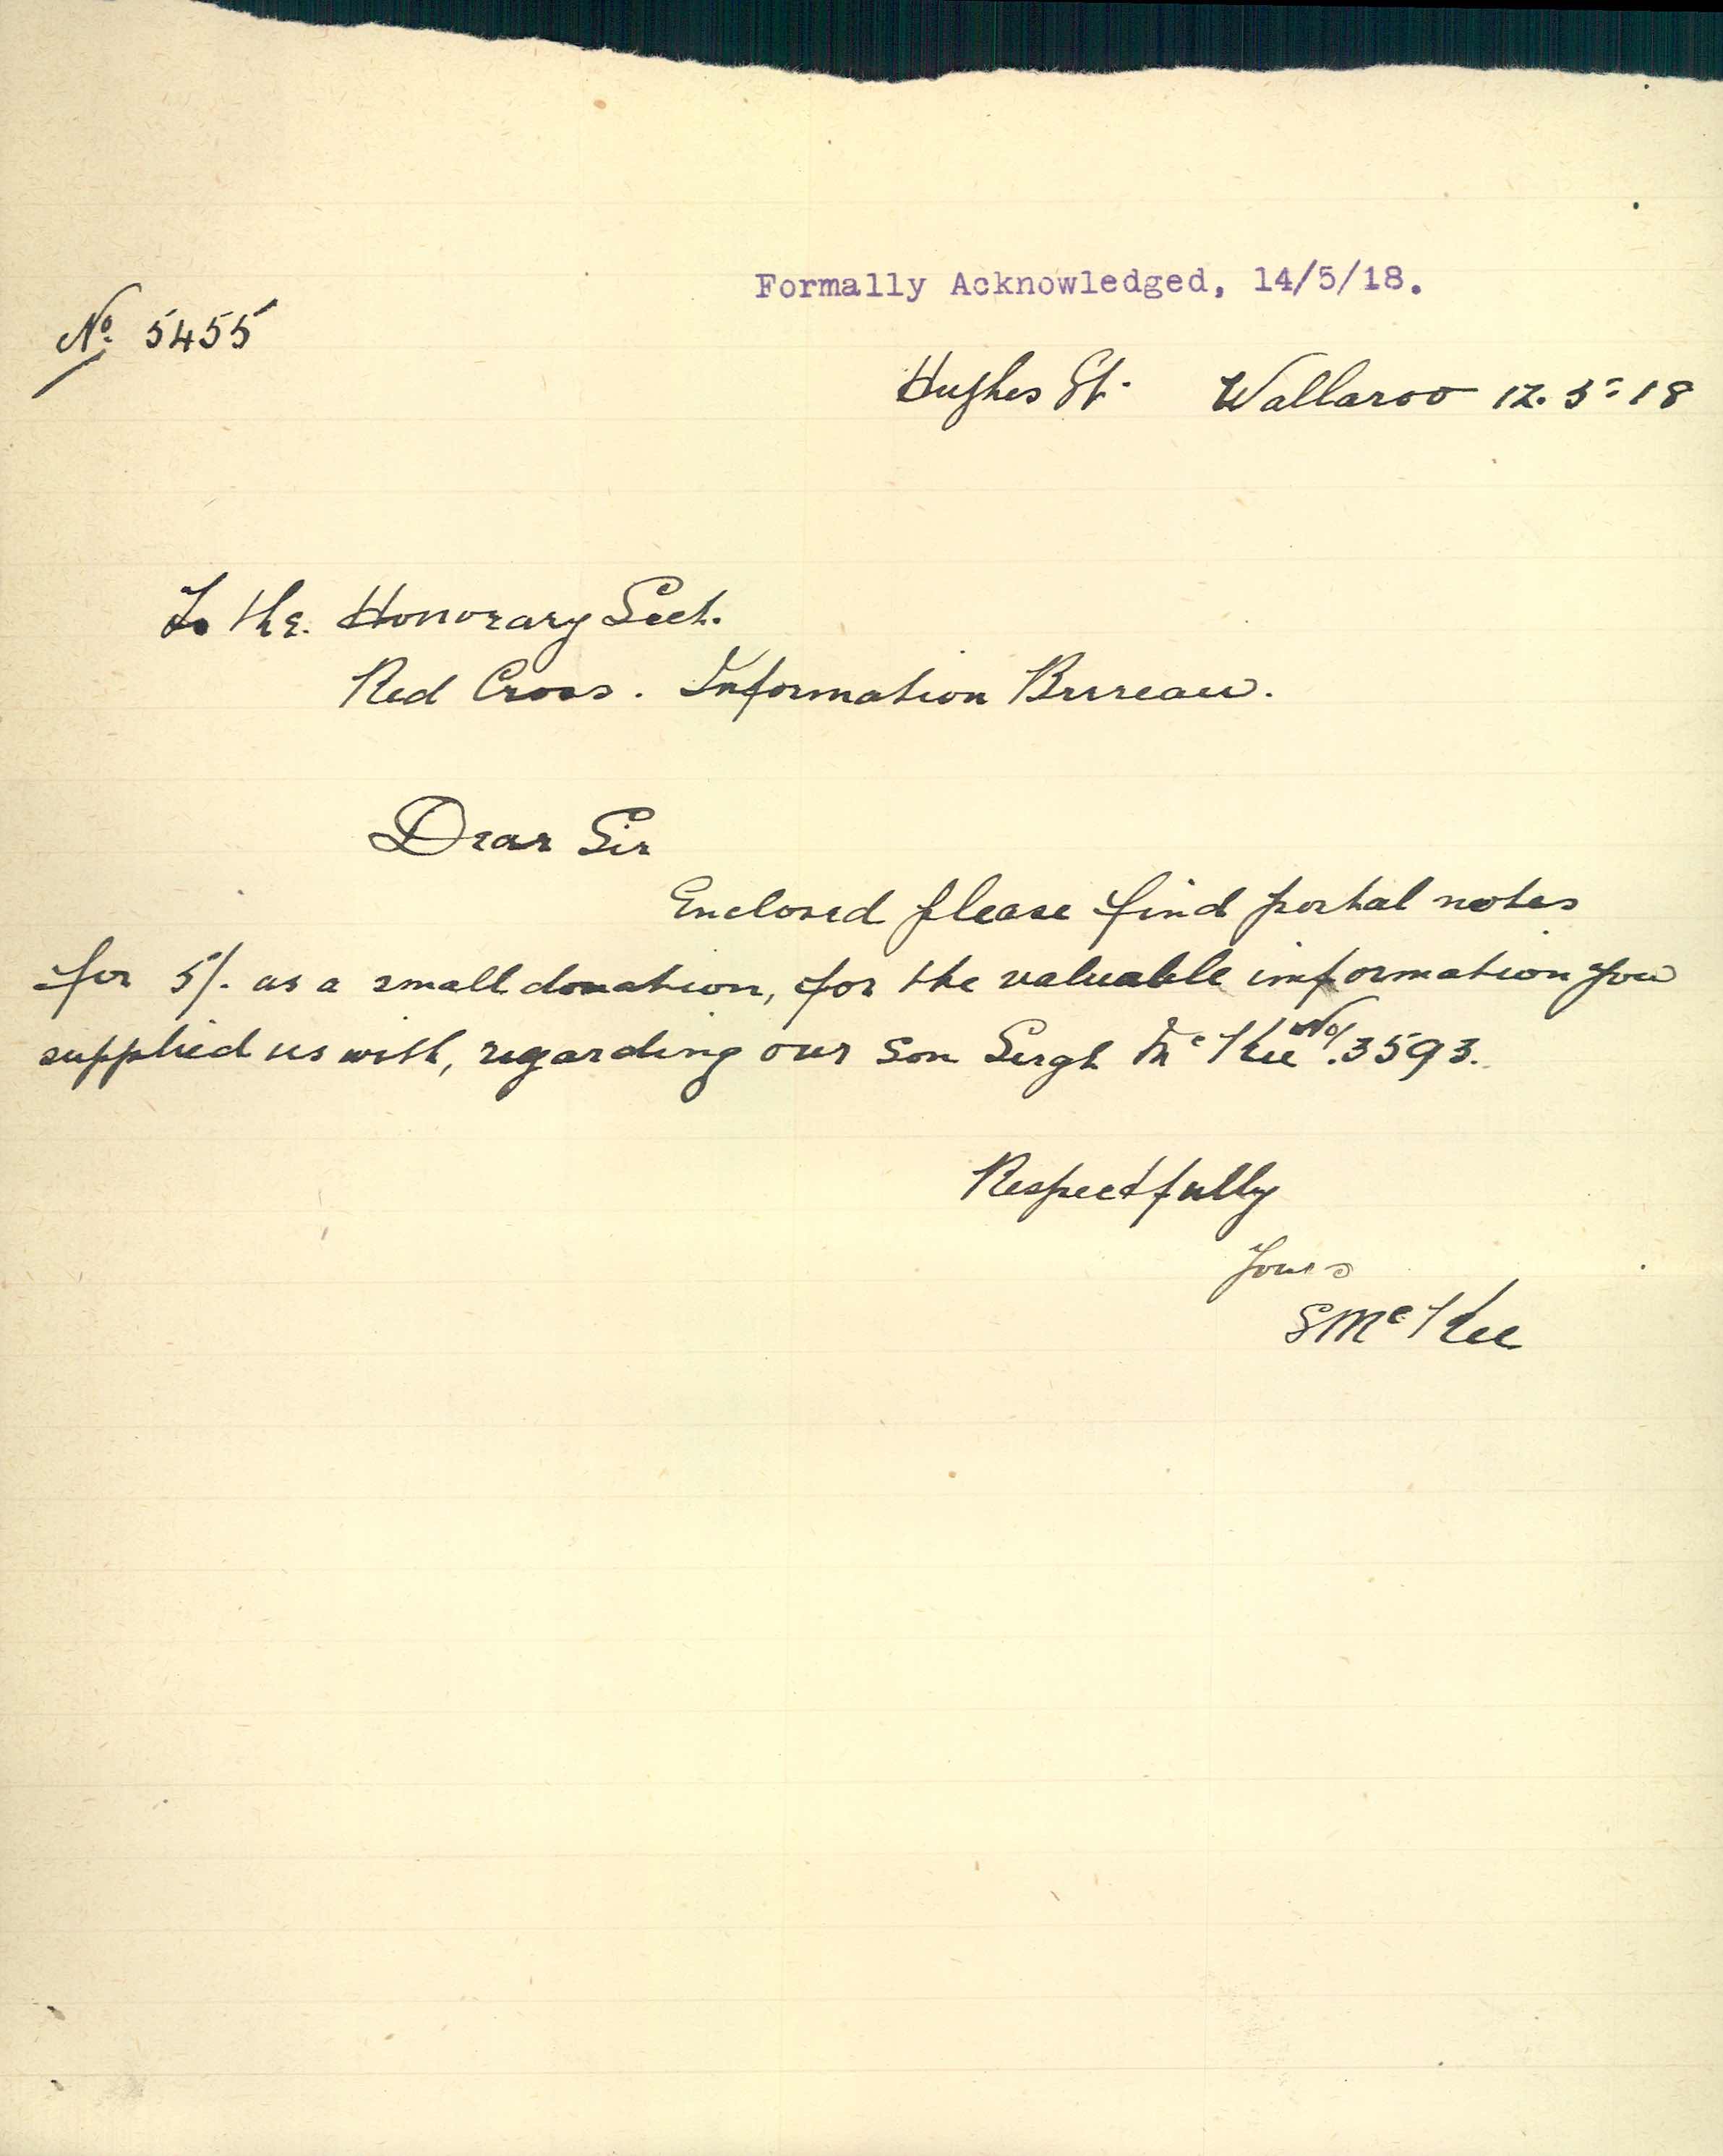 Formally Acknowledged, 14/5/18.
No. 5455
Hughes St. Wallaroo 12.5.18
To the. Honorary Sect.
Red Cross. Information Bureau.
Dear Sir
Enclosed please find postal notes
for 5/. as a small donation, for the valuable information you
supplied us with, regarding our Son Sergt McKee No. 3593.
Respectfully
Yours
S McKee